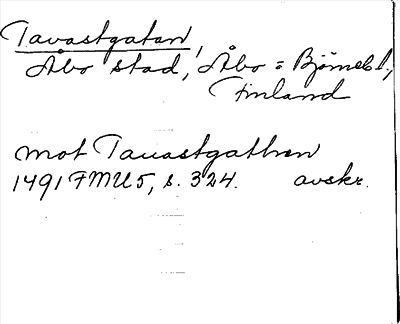 Tavastgatan,
Åbo stad, Åbo = Björneb l.,
Finland
mot Tauastgathen
1491 FMU 5, s. 324. avskr.